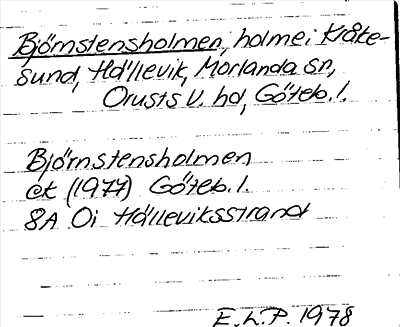 Björnstensholmen, holme i Kråke-
sund, Hällevik, Morlanda sn,
Orusts V. hd, Göteb. l.
Björnstensholmen
ek (1977) Göteb. l.
8A Oi Hälleviksstrand
E.L.P. 1978